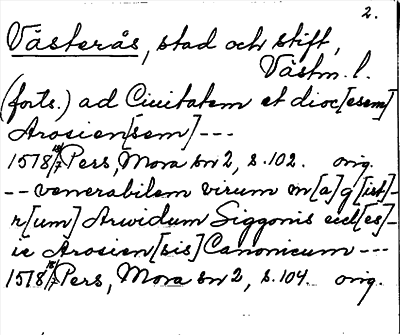 2.
Västerås, stad och stift,
Västm. l.
(forts.) ad Civitatem et dioc[esem]
Arosien[sem] ---
1518 18/7 Pers, Mora sn 2, s. 102. orig.
-- venerabilem virum m[a]g[ist]-
r[um] Arwidum Siggonis eccl[es]-
ie Arosien[sis] Canonicum ---
1518 18/7 Pers, Mora sn 2, s. 104. orig.